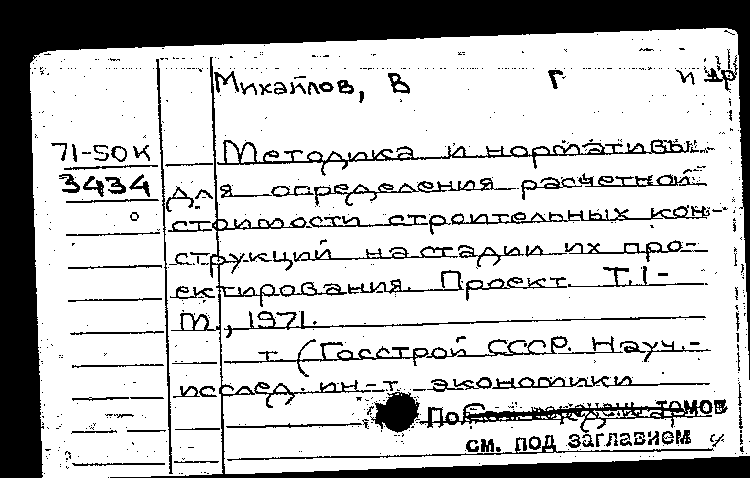 Михайлов, В Г и др
71-50к
3434
Методика и нормативы
для определения расчетной
стоимости строительных кон-
струкций на стадии их про-
ектирования. Проект. Т.1-
М., 1971.
т. (Госстрой СССР. Науч.-
исслед. ин-т экономики
Полный перечень томов
см. под заглавием